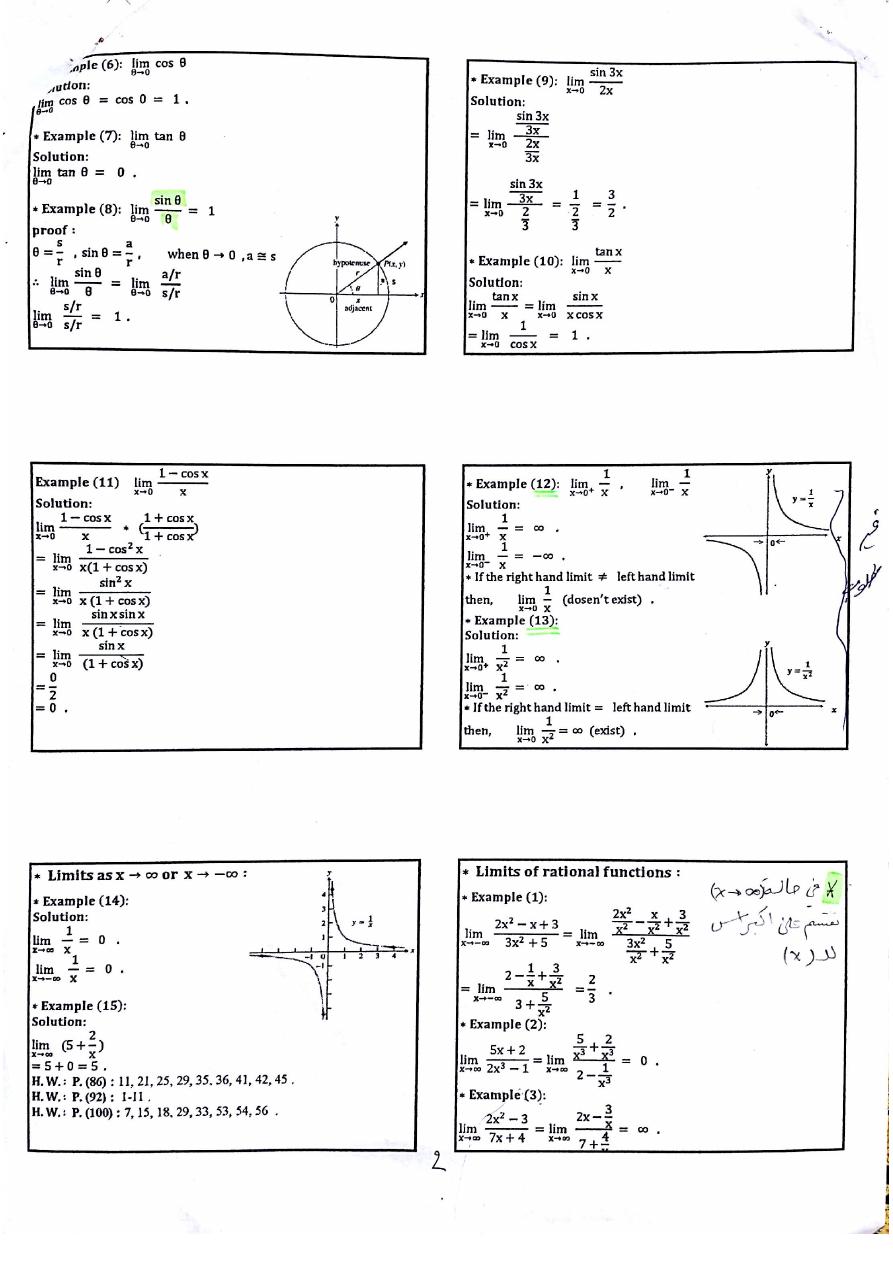 mple (6): lim θ→0 cos θ
ution:
lim θ→0 cos θ = cos 0 = 1 .
* Example (7): lim θ→0 tan θ
Solution:
lim θ→0 tan θ = 0 .
* Example (8): lim θ→0 sin θ / θ = 1
proof :
θ = s/r , sin θ = a/r , when θ → 0 , a ≅ s
∴ lim θ→0 sin θ / θ = lim θ→0 (a/r)/(s/r)
lim θ→0 (s/r)/(s/r) = 1 .
y
hypotenuse P(x, y)
r a s
θ
0 x x
adjacent
* Example (9): lim x→0 sin 3x / 2x
Solution:
= lim x→0 (sin 3x / 3x) / (2x / 3x)
= lim x→0 (sin 3x / 3x) / (2/3) = 1 / (2/3) = 3/2 .
* Example (10): lim x→0 tan x / x
Solution:
lim x→0 tan x / x = lim x→0 sin x / x cos x
= lim x→0 1 / cos x = 1 .
Example (11) lim x→0 1 − cos x / x
Solution:
lim x→0 1 − cos x / x * (1 + cos x / 1 + cos x)
= lim x→0 1 − cos² x / x(1 + cos x)
= lim x→0 sin² x / x (1 + cos x)
= lim x→0 sin x sin x / x (1 + cos x)
= lim x→0 sin x / (1 + cos x)
= 0/2
= 0 .
* Example (12): lim x→0⁺ 1/x , lim x→0⁻ 1/x
Solution:
lim x→0⁺ 1/x = ∞ .
lim x→0⁻ 1/x = −∞ .
* If the right hand limit ≠ left hand limit
then, lim x→0 1/x (dosen't exist) .
* Example (13):
Solution:
lim x→0⁺ 1/x² = ∞ .
lim x→0⁻ 1/x² = ∞ .
* If the right hand limit = left hand limit
then, lim x→0 1/x² = ∞ (exist) .
y
y = 1/x
→ 0 ← x
y
y = 1/x²
→ 0 ← x
* Limits as x → ∞ or x → −∞ :
* Example (14):
Solution:
lim x→∞ 1/x = 0 .
lim x→−∞ 1/x = 0 .
* Example (15):
Solution:
lim x→∞ (5 + 2/x)
= 5 + 0 = 5 .
H. W. : P. (86) : 11, 21, 25, 29, 35. 36, 41, 42, 45 .
H. W. : P. (92) : I-II .
H. W. : P. (100) : 7, 15, 18, 29, 33, 53, 54, 56 .
y
4
3
2 y = 1/x
1
−1 0 1 2 3 4 x
−1
* Limits of rational functions :
* Example (1):
lim x→−∞ 2x² − x + 3 / 3x² + 5 = lim x→−∞ (2x²/x² − x/x² + 3/x²) / (3x²/x² + 5/x²)
= lim x→−∞ (2 − 1/x + 3/x²) / (3 + 5/x²) = 2/3 .
* Example (2):
lim x→∞ 5x + 2 / 2x³ − 1 = lim x→∞ (5/x³ + 2/x³) / (2 − 1/x³) = 0 .
* Example (3):
lim x→∞ 2x² − 3 / 7x + 4 = lim x→∞ (2x − 3/x) / (7 + 4/
= ∞ .
في حالة (x→∞)
نقسم على اكبر اس
للـ (x)
2